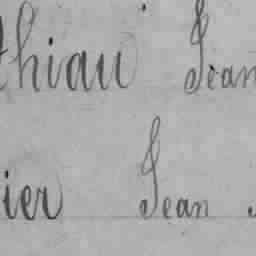 thiau Jean
ier Jean